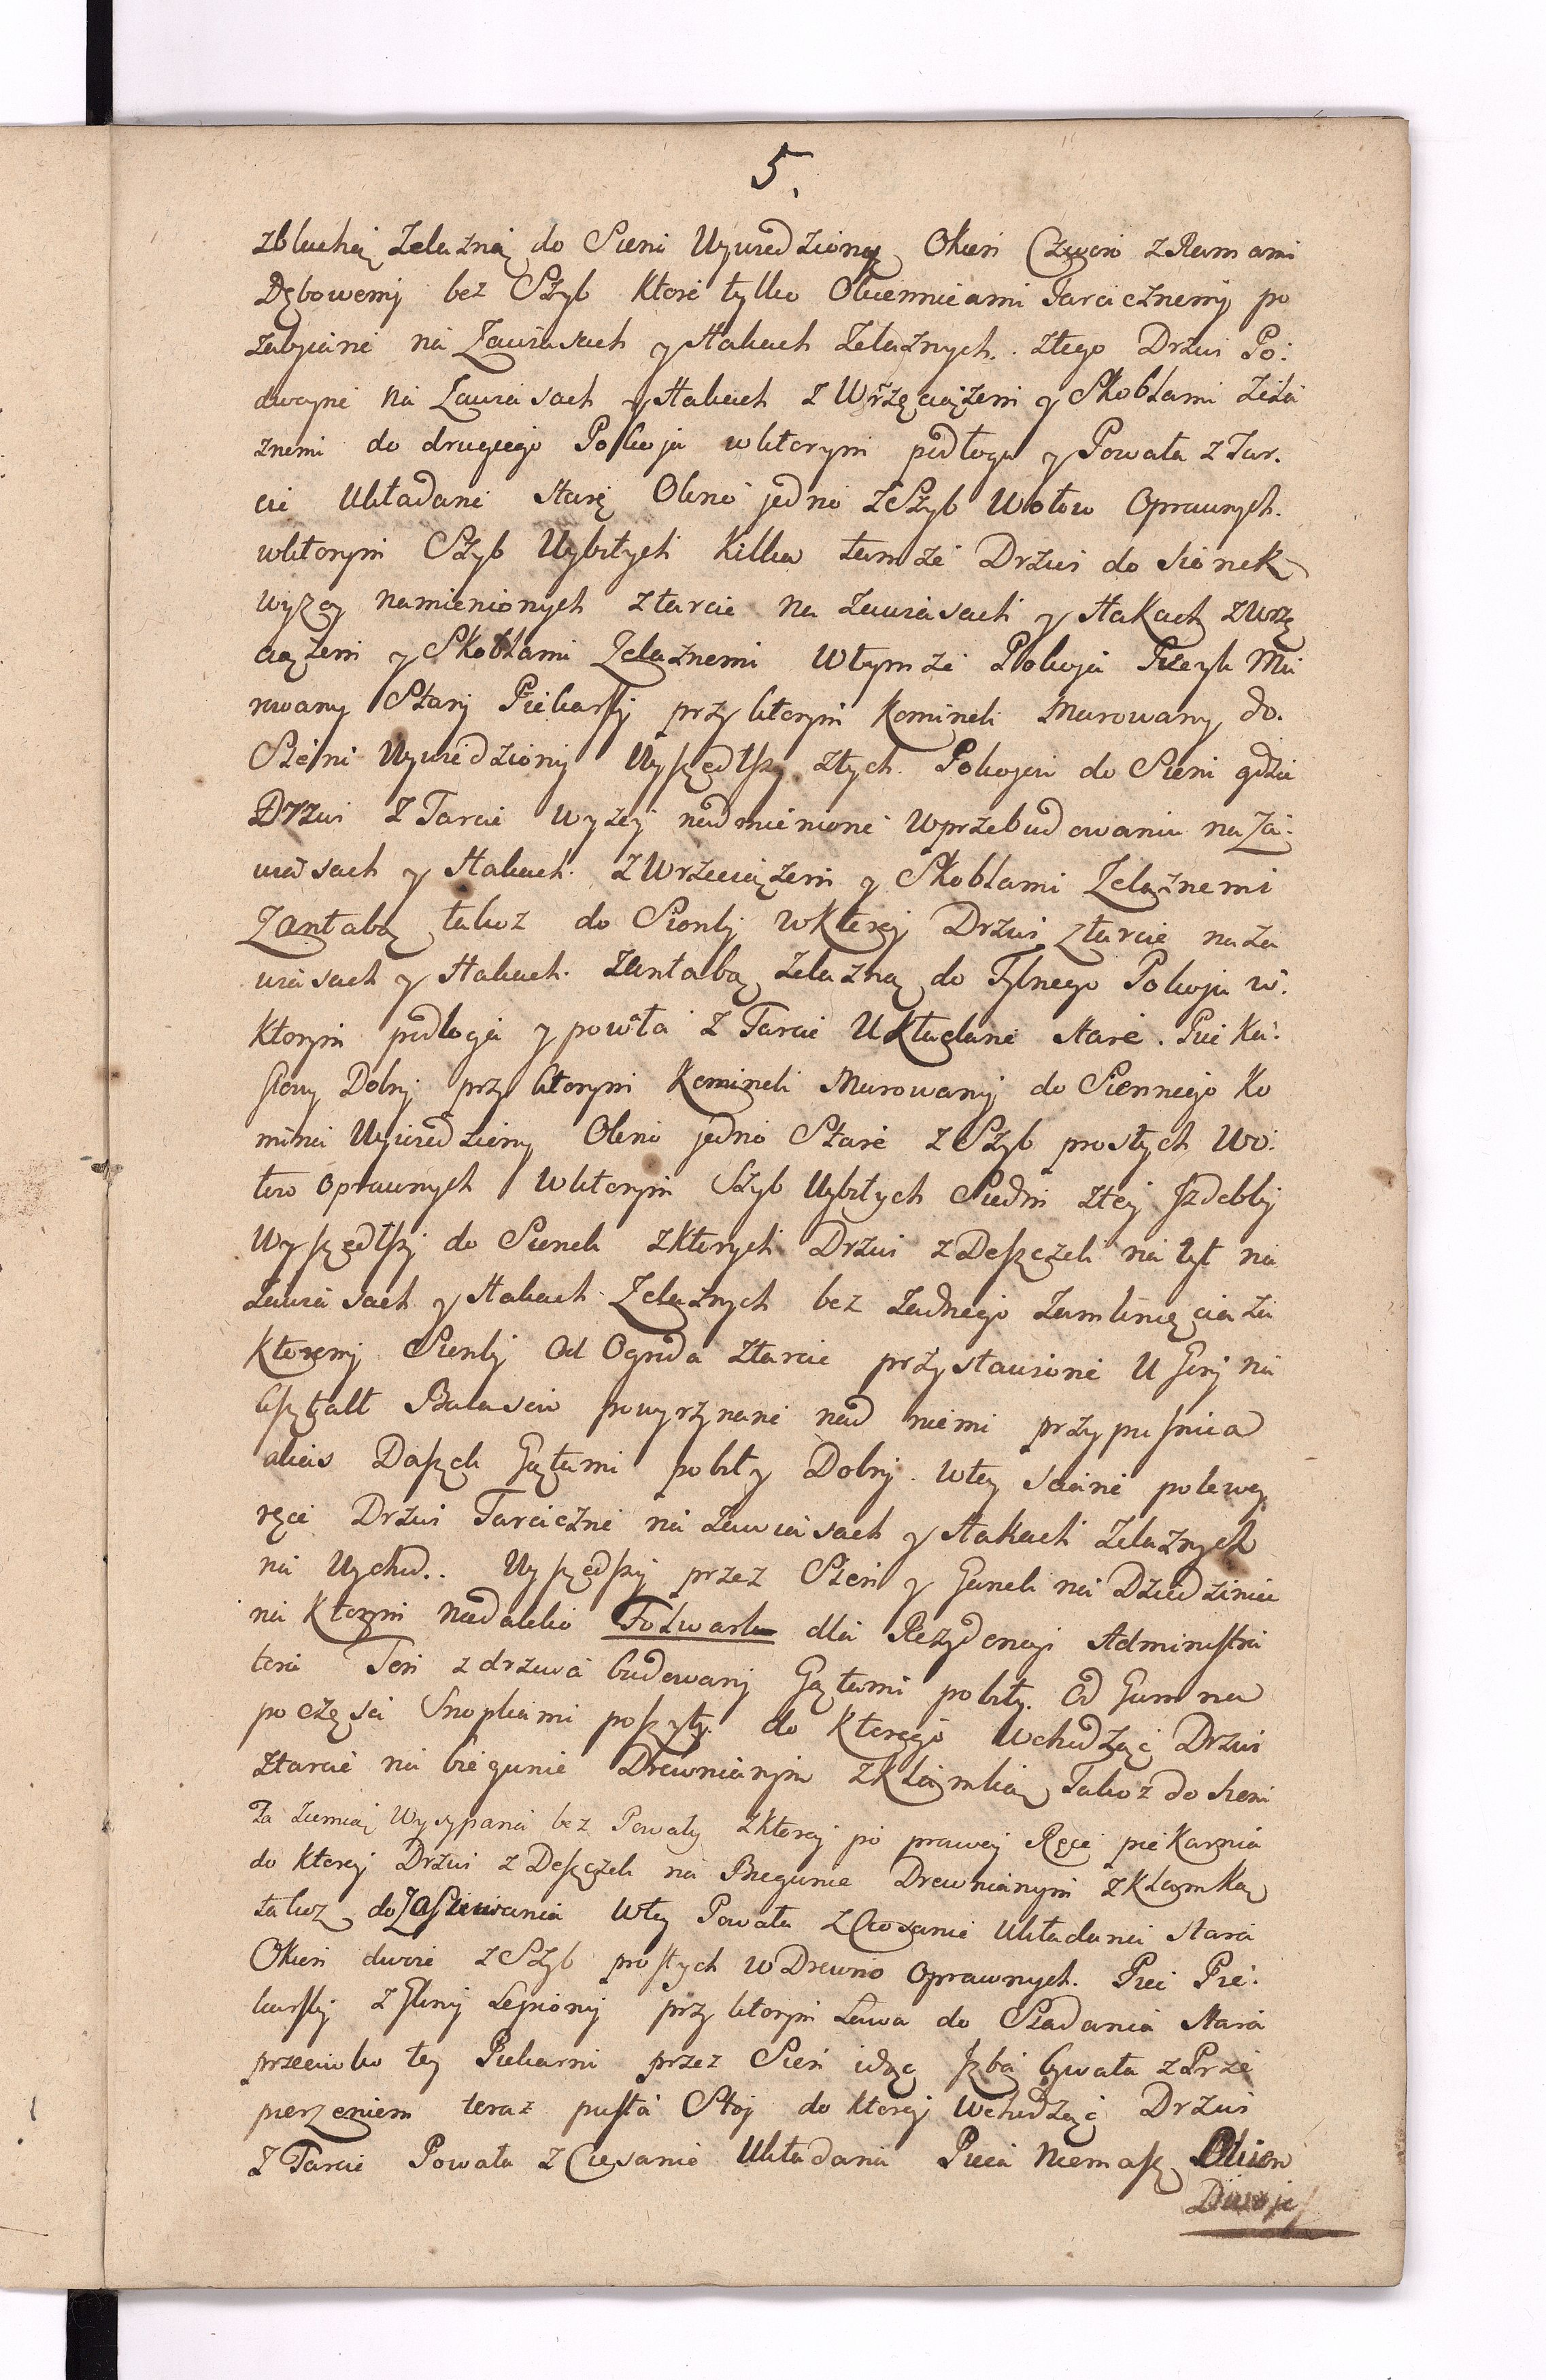 5.
zbluchą Zelazną do Sieni Wywiedzioną Okien Czworo z Ramami
Dębowemy bez Szyb ktore tylko Okiennicami Tarcicznemy po
zabyiane na Zawiasach y Hakach Zelaznych. ztego Drzwi Po:
dwoyne na Zawiasach y Hakach z Wrzęciążem y Skoblami Zela
znemi do drugiego Pokoja wktorym podłoga y Powała z Tar.
cic Układane stare Okno jedno z Szyb Wołow Oprawnych.
wktorym Szyb Wybitych Kilka tamze Drzwi do sionek
wyzey namienionych z tarcic na Zawiasach y Hakach z Wrzę
ciązem y Skoblami Zelaznemi Wtymze Pokoju Piecyk Mu
rowany Stary Piekarsky przy ktorym Kominek Murowany do.
Sieni Wywiedziony Wyszedłszy ztych Pokojow do Sieni gdzie
Drzwi z Tarcic wyzey nadmienione w przebudowaniu na Za:
wiasach y Hakach. z Wrzeciązem y Skoblami Zelaznemi
Zantabą takoz do Sionky wktorej Drzwi z tarcic na Za
wiasach y Hakach. Zantabą Zelazną do Tylnego Pokoju w.
Ktorym podłoga y powała z Tarcic Układane stare. Piec Ka:
flowy Dobry przy ktorym Kominek Murowany do Siennego Ko
mina Wywiedziony Okno jedno Stare z Szyb prostych Wo:
łow oprawnych wktorym Szyb Wybitych Siedm ztey Jzdebky
Wyszedłszy do Sionek zktorych Drzwi z Deszczek na tył na
Zawiasach y Hakach Zelaznych bez Zadnego Zamknięcia za
Ktoremy Sionky Od Ogroda ztarcic przystawione U Gory na
kształt Balasow powyrzynane nad niemi przypusnica
akias Daszek Gątami pobity Dobry. wtey scianie polewey
ręce Drzwi Tarciczne na Zawiasach y Hakach Zelaznych
na Wychod.. Wyszedszy przez Sień y Ganek na Dziedziniec
na Ktorym niedaleko Folwark dla Rezydencyi Administra
tora Ten zdrzewa budowany Gątami pobity. Od Gumna
poczęsci Snopkami poszyty. do Ktorego Wchodząc Drzwi
ztarcic na biegunie Drewnianym z Klamką Takoz do sieni
Ta Ziemią Wysypana bez Powały zktorej po prawej Ręce piekarnia
do Ktorej Drzwi z Deszczek na Biegunie Drewnianym z Klamką
takoz do Zasuwania Wtey Powała z Ciosanic Układana stara
Okien dwoie z Szyb prostych w Drewno Oprawnych. Piec Pie:
karsky z Gliny Lepiony przy ktorym Ława do Siadania Stara
przeciwko tey Piekarni przez Sień idąc Jzba bywała z Prze
pierzeniem teraz pusta Stoj do ktorej Wchodząc Drzwi
z Tarcic Powała z Ciesanic Układana Pieca Niemasz Okien
Dwoje